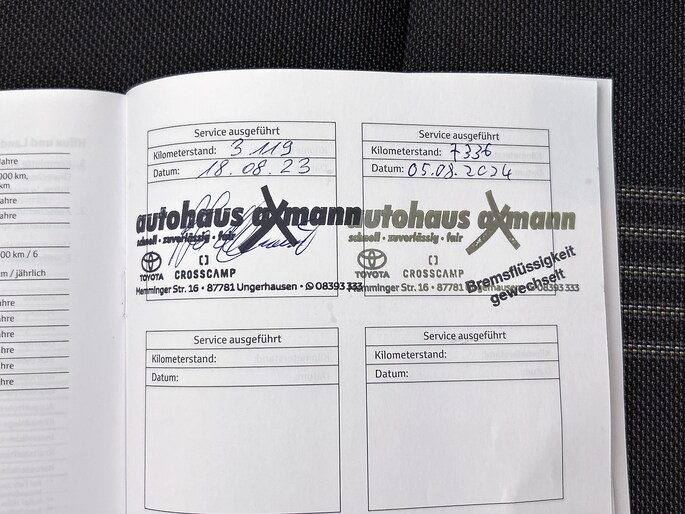 Jahre
000 km,
km
ahre
ahre
00 km / 6
km / jährlich
ahre
ahre
ahre
ahre
ahre
Service ausgeführt
Kilometerstand: 3 119
Datum: 18.08.23
autohaus axmann
schnell · zuverlässig · fair
TOYOTA
CROSSCAMP
Memminger Str. 16 · 87781 Ungerhausen · 08393 333
Service ausgeführt
Kilometerstand: 7336
Datum: 05.08.2024
autohaus axmann
schnell · zuverlässig · fair
TOYOTA
CROSSCAMP
Memminger Str. 16 · 87781 Ungerhausen · 08393 333
Bremsflüssigkeit
gewechselt
Service ausgeführt
Kilometerstand:
Datum:
Service ausgeführt
Kilometerstand:
Datum: